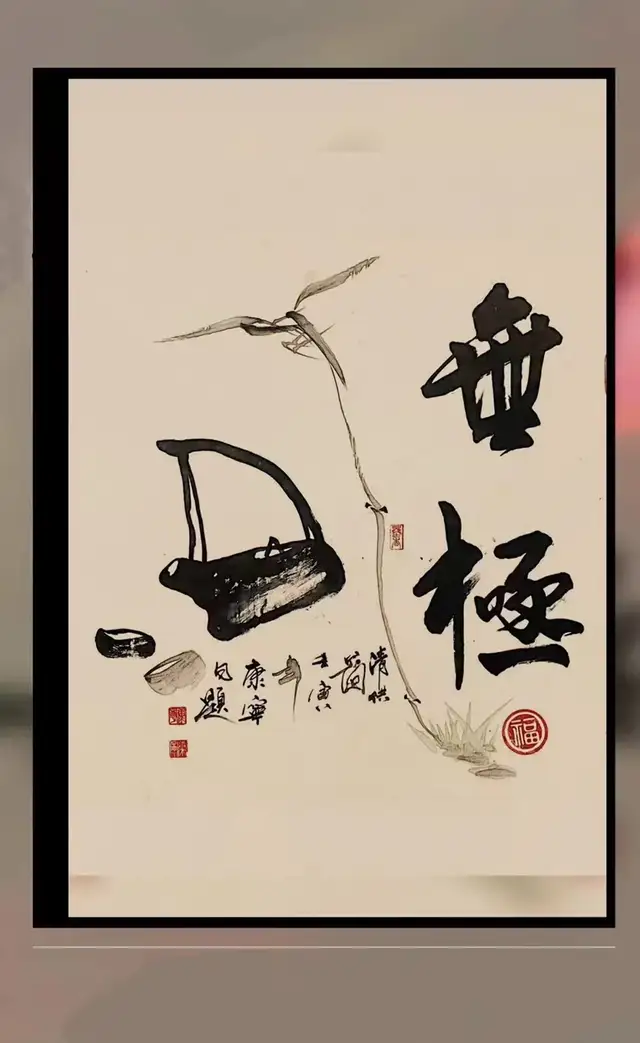 無極
清供
圖
壬寅
年
康寧
福